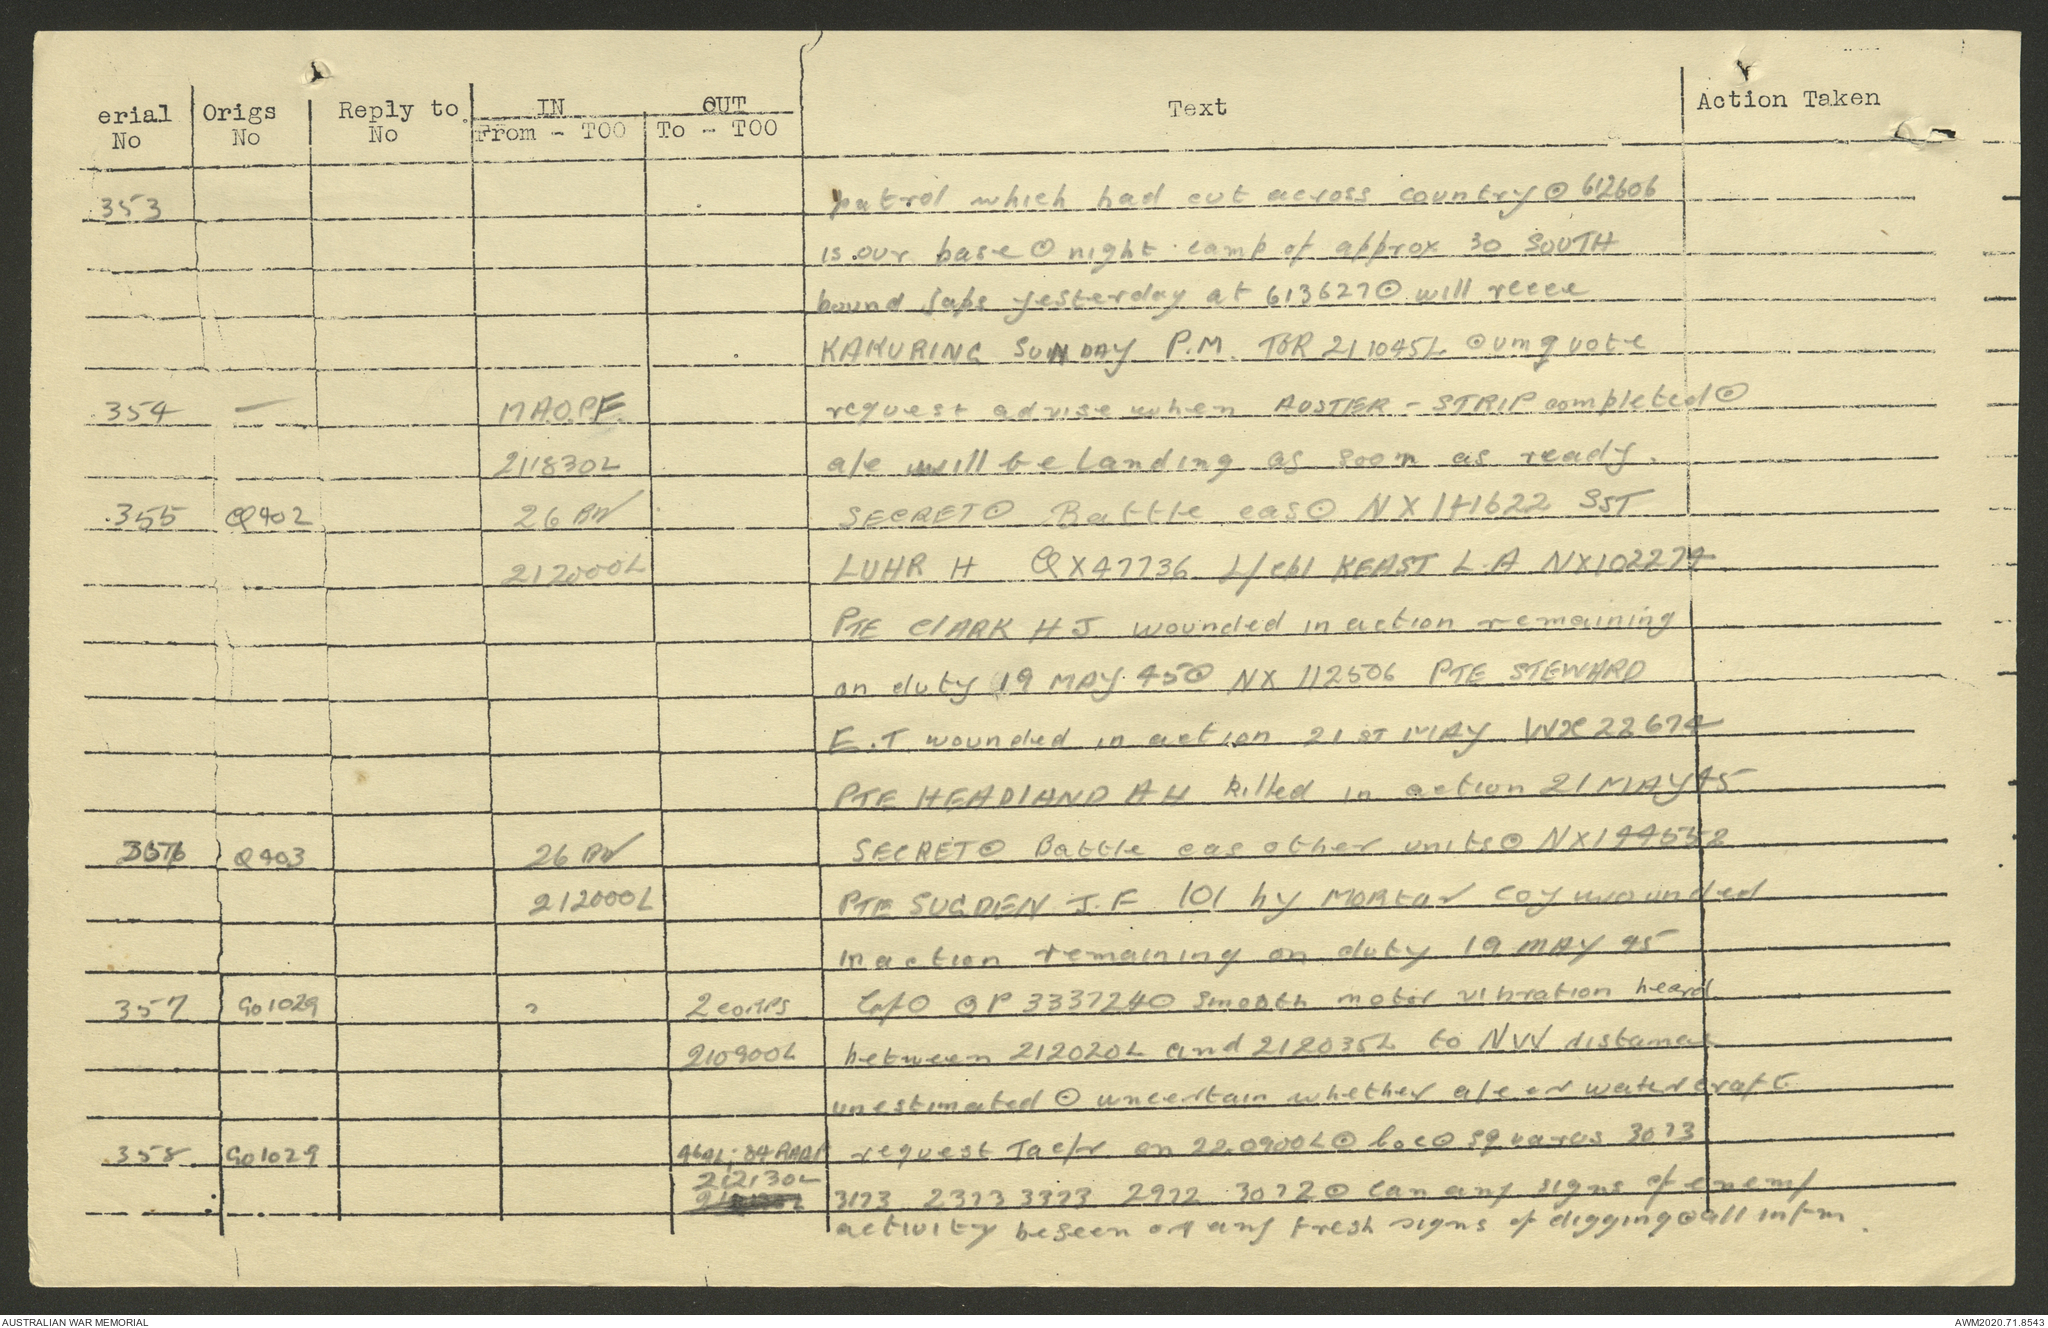 erial No Origs No Reply to No IN From - TOO OUT To - TOO Text Action Taken
353 patrol which had cut across country ⊙ 612606
is our base ⊙ night camp of approx 30 SOUTH
bound Japs yesterday at 613627 ⊙ will recce
KAKURING SUNDAY P.M. TOR 211045L ⊙ umquote
354 — 17 A.O.P.F. request advise when AUSTER - STRIP completed ⊙
211830L a/c will be landing as soon as ready.
355 Q402 26 BN SECRET ⊙ Battle cas ⊙ NX141622 SJT
212000L LUHR H QX47736 L/cpl KEAST L A NX102274
PTE CLARK H J wounded in action remaining
on duty 19 MAY 45 ⊙ NX 112506 PTE STEWARD
E.T wounded in action 21ST MAY WX22674
PTE HEADLAND A H killed in action 21 MAY 45
356 Q403 26 BN SECRET ⊙ Battle cas other units ⊙ NX144558
212000L PTE SUGDEN J.F 101 hy MORTAR COY wounded
in action remaining on duty 19 MAY 45
357 Go1029 2 CORPS OP 333724 ⊙ smooth motor vibration heard
210900L between 212020L and 212035L to NW distance
unestimated ⊙ uncertain whether a/c or watercraft
358 Go1029 request Tac/r on 22.0900L ⊙ loc ⊙ squares 3073
212130L 3173 2373 3373 2972 3072 ⊙ can any signs of enemy
activity be seen or any fresh signs of digging ⊙ all infm.
AUSTRALIAN WAR MEMORIAL AWM2020.71.8543